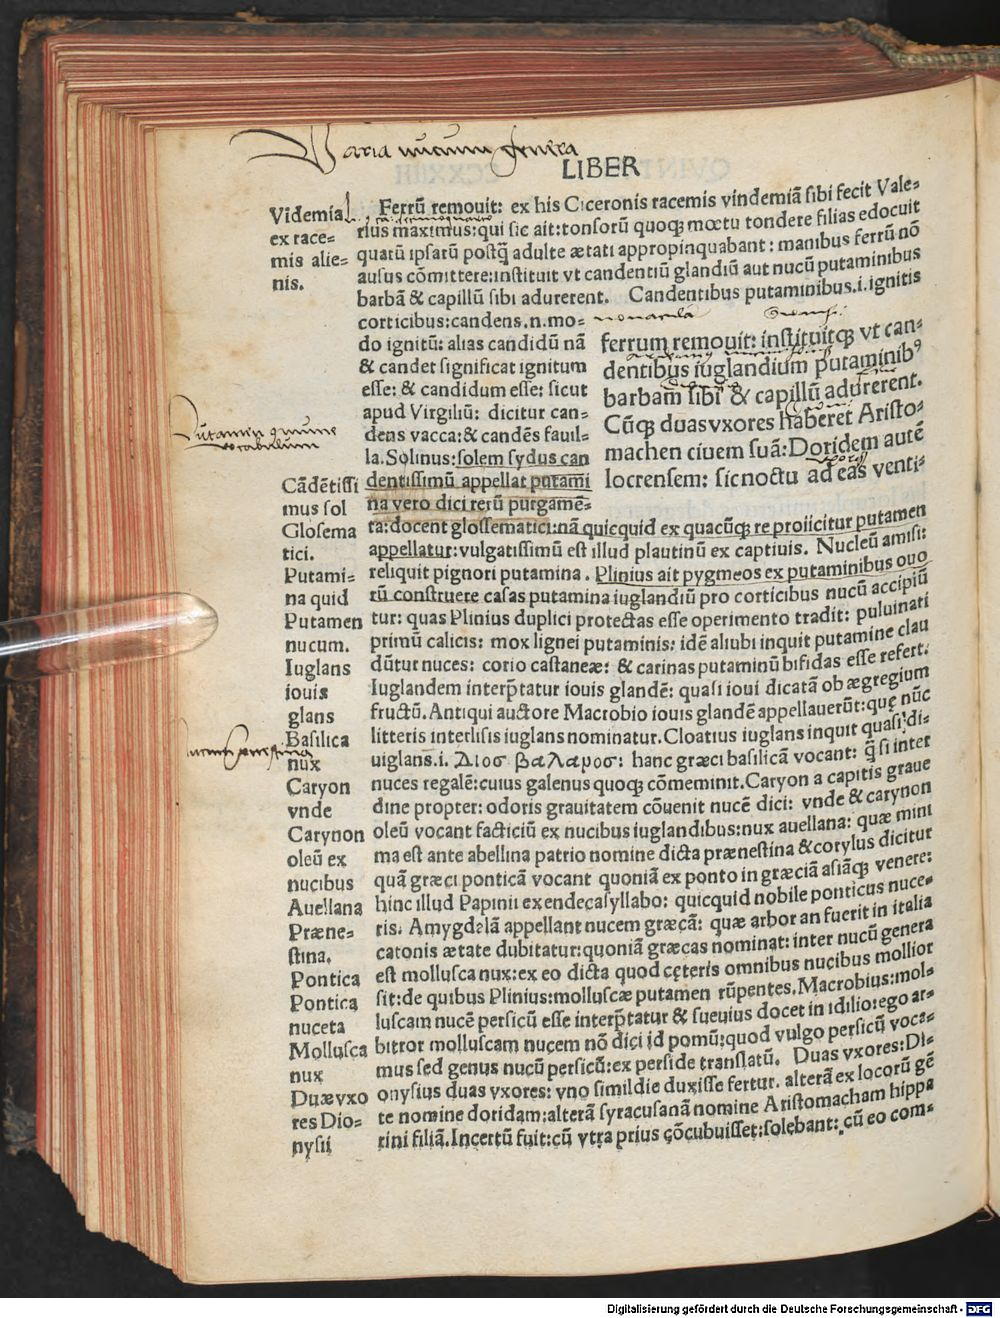 Varia nucum genera
LIBER
Videmia
ex race=
mis alie=
nis.
Ferrū remouit: ex his Ciceronis racemis vindemiā sibi fecit Vale=
rius maximus: qui sic ait: tonsorū quoq̷ mœtu tondere filias edocuit
quatū ipsarū postq̄ adulte ætati appropinquabant: manibus ferrū nō
ausus cōmittere: instituit vt candentiū glandiū aut nucū putaminibus
barbā & capillū sibi adurerent. Candentibus putaminibus.i.ignitis
corticibus: candens.n.mo=
do ignitū: alias candidū nā
& candet significat ignitum
esse: & candidum esse: sicut
apud Virgiliū: dicitur can=
dens vacca: & candēs fauil=
la. Solinus: solem sydus can
dentissimū appellat putami
na vero dici rerū purgamē=
nouacula
ferrum remouit: instituitq̷ vt can=
dentibus iuglandium putaminibꝰ
barbam sibi & capillū adurerent.
Cūq̷ duas vxores haberet Aristo=
machen ciuem suā: Doridem autē
locrensem: sic noctu ad eas venti=
Putamen
vocabulum
Cādētissi
mus sol
Glosema
tici.
Putami=
na quid
Putamen
nucum.
Iuglans
iouis
glans
Basilica
nux
Caryon
vnde
Carynon
oleū ex
nucibus
Auellana
Præne=
stina.
Pontica
Pontica
nuceta
Mollusca
nux
Duæ vxo
res Dio=
nysii
ta: docent glossematici: nā quicquid ex quacūq̷ re proiicitur putamen
appellatur: vulgatissimū est illud plautinū ex captiuis. Nucleū amisi:
reliquit pignori putamina. Plinius ait pygmeos ex putaminibus ouo
rū construere casas putamina iuglandiū pro corticibus nucū accipiū
tur: quas Plinius duplici protectas esse operimento tradit: puluinati
primū calicis: mox lignei putaminis: idē aliubi inquit putamine clau
dūtur nuces: corio castaneæ: & carinas putaminū bifidas esse refert.
Iuglandem interp̄tatur iouis glandē: quasi ioui dicatā ob ægregium
fructū. Antiqui auctore Macrobio iouis glandē appellauerūt: quę nūc
litteris interlisis iuglans nominatur. Cloatius iuglans inquit quasi di=
uiglans.i. Διοσ βαλαμοσ: hanc græci basilicā vocant: q̄ si inter
nuces regalē: cuius galenus quoq̷ cōmeminit. Caryon a capitis graue
dine propter: odoris grauitatem cōuenit nucē dici: vnde & carynon
oleū vocant facticiū ex nucibus iuglandibus: nux auellana: quæ mini
ma est ante abellina patrio nomine dicta prænestina & corylus dicitur
quā græci ponticā vocant quoniā ex ponto in græciā asiāq̷ venere:
hinc illud Papinii ex endecasyllabo: quicquid nobile ponticus nuce=
ris. Amygdalā appellant nucem græcā: quæ arbor an fuerit in italia
catonis ætate dubitatur: quoniā græcas nominat: inter nucū genera
est mollusca nux: ex eo dicta quod cęteris omnibus nucibus mollior
sit: de quibus Plinius: molluscæ putamen rūpentes. Macrobius: mol=
luscam nucē persicū esse interp̄tatur & sueuius docet in idilio: ego ar=
bitror molluscam nucem nō dici id pomū: quod vulgo persicū voca=
mus sed genus nucū persicū: ex perside translatū. Duas vxores: Di=
onysius duas vxores: vno simil die duxisse fertur. alterā ex locorū gē
te nomine doridam: alterā syracusanā nomine Aristomacham hippa
rini filiā. Incertū fuit: cū vtra prius cōcubuisset: solebant: cū eo com=
Digitalisierung gefördert durch die Deutsche Forschungsgemeinschaft - DFG